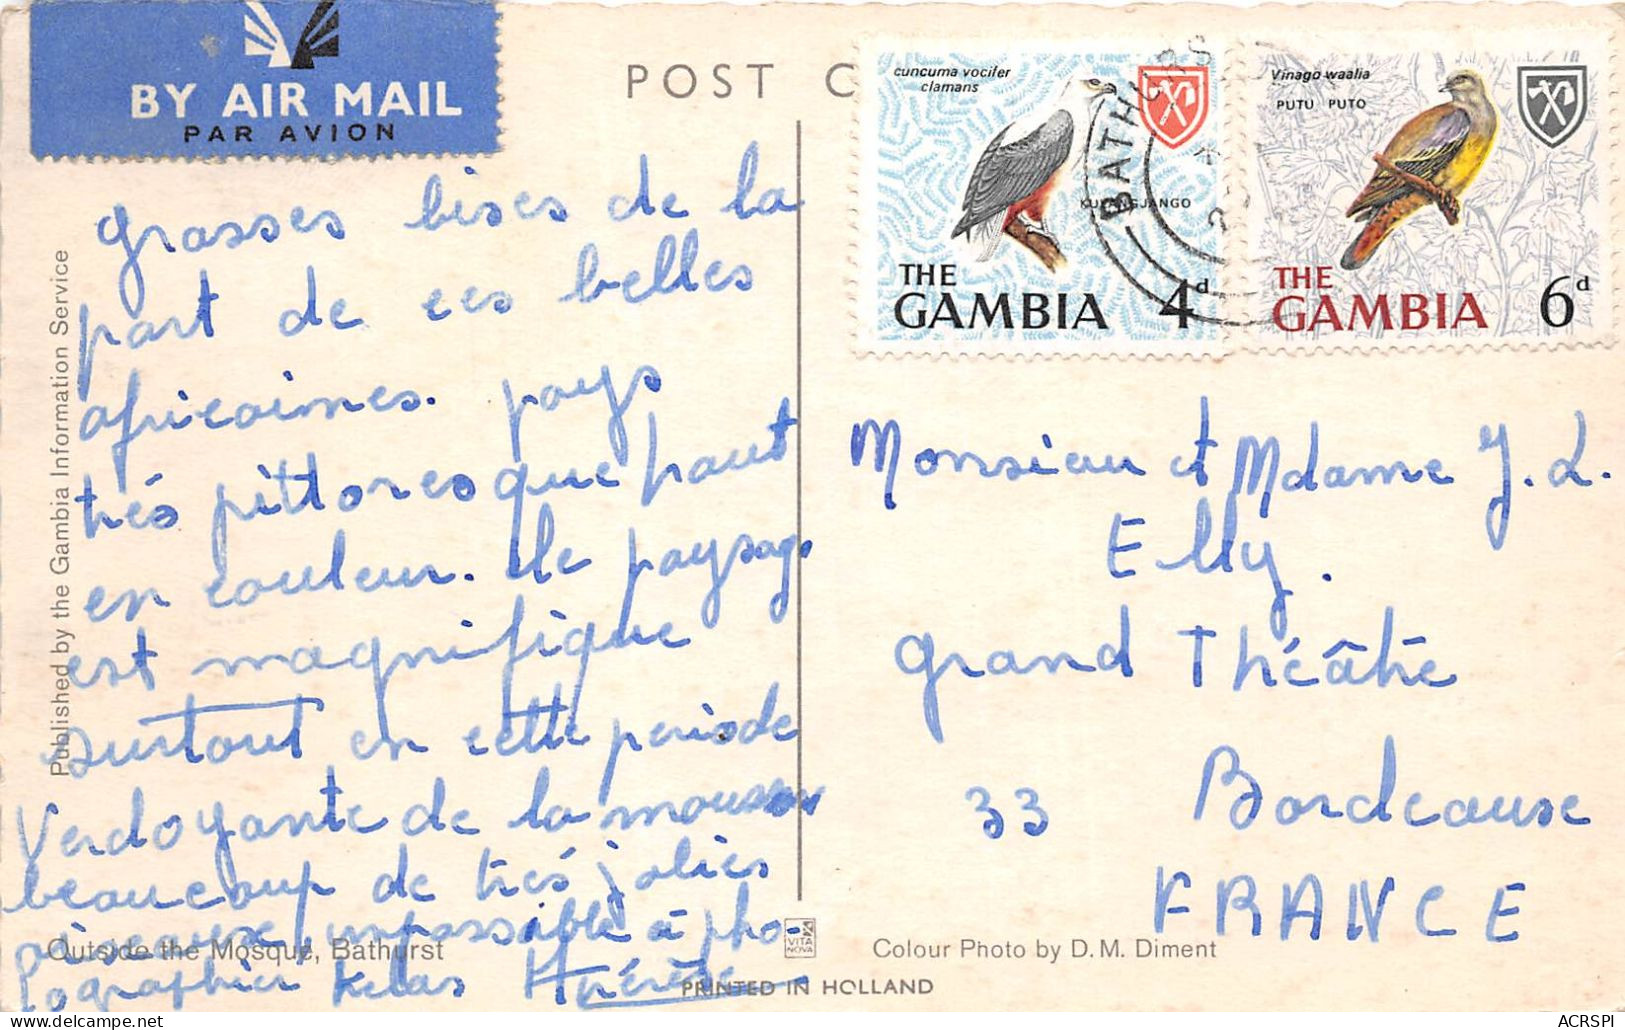 BY AIR MAIL
PAR AVION
POST C
cuncuma vocifer
clamans
KUYANGJANGO
THE
GAMBIA 4d
BATHURS
Vinago waalia
PUTU PUTO
THE
GAMBIA 6d
Published by the Gambia Information Service
grosses bises de la
part de ces belles
africaines. pays
très pittoresque haut
en couleur. le paysage
est magnifique
surtout en cette periode
Verdoyante de la mousson
beaucoup de très jolies
oiseaux, impassible à pho-
tographier helas Thérèse
Monsieur et Mdame J. L.
Elly.
grand Théâtre
33 Bordeause
FRANCE
Outside the Mosque, Bathurst
VITA
NOVA
Colour Photo by D. M. Diment
PRINTED IN HOLLAND
ACRSPI